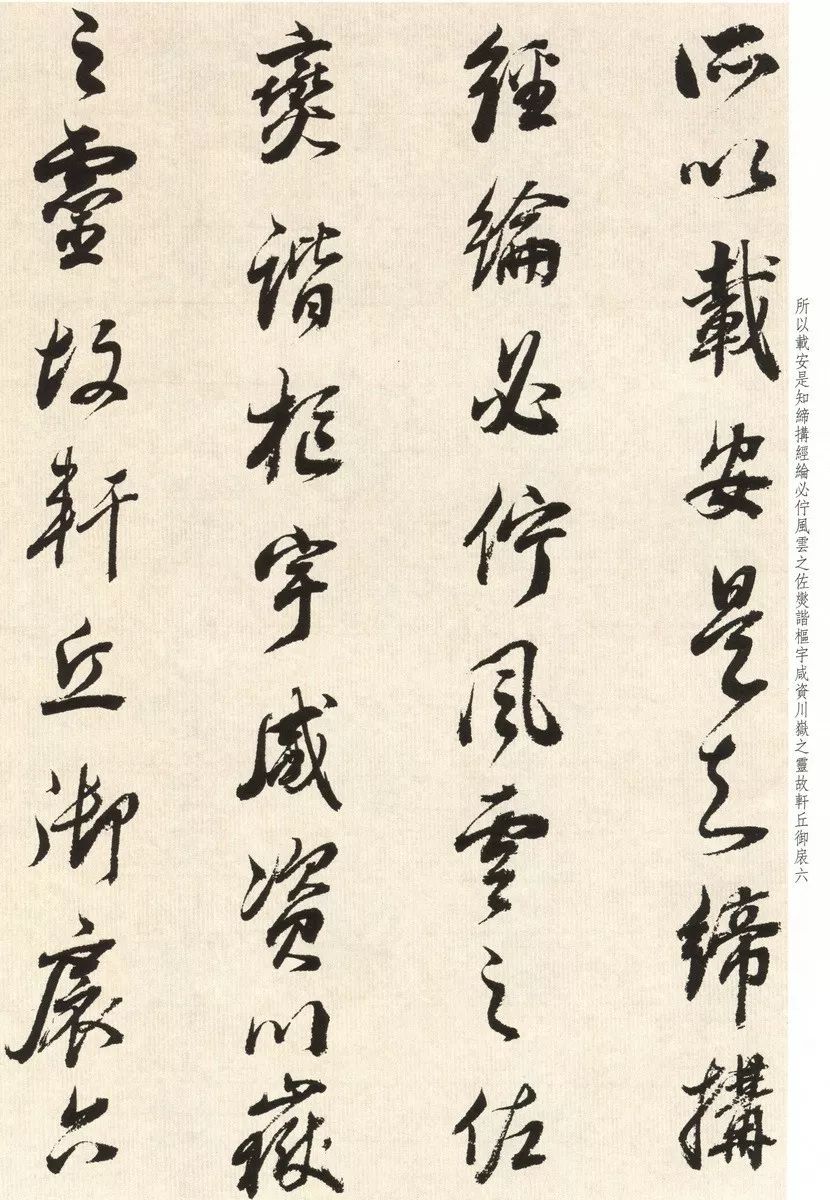 所以載安是知締搆
經綸必佇風雲之佐
爕諧樞宇咸資川嶽
之靈故軒丘御扆六
所以載安是知締搆經綸必佇風雲之佐爕諧樞宇咸資川嶽之靈故軒丘御扆六